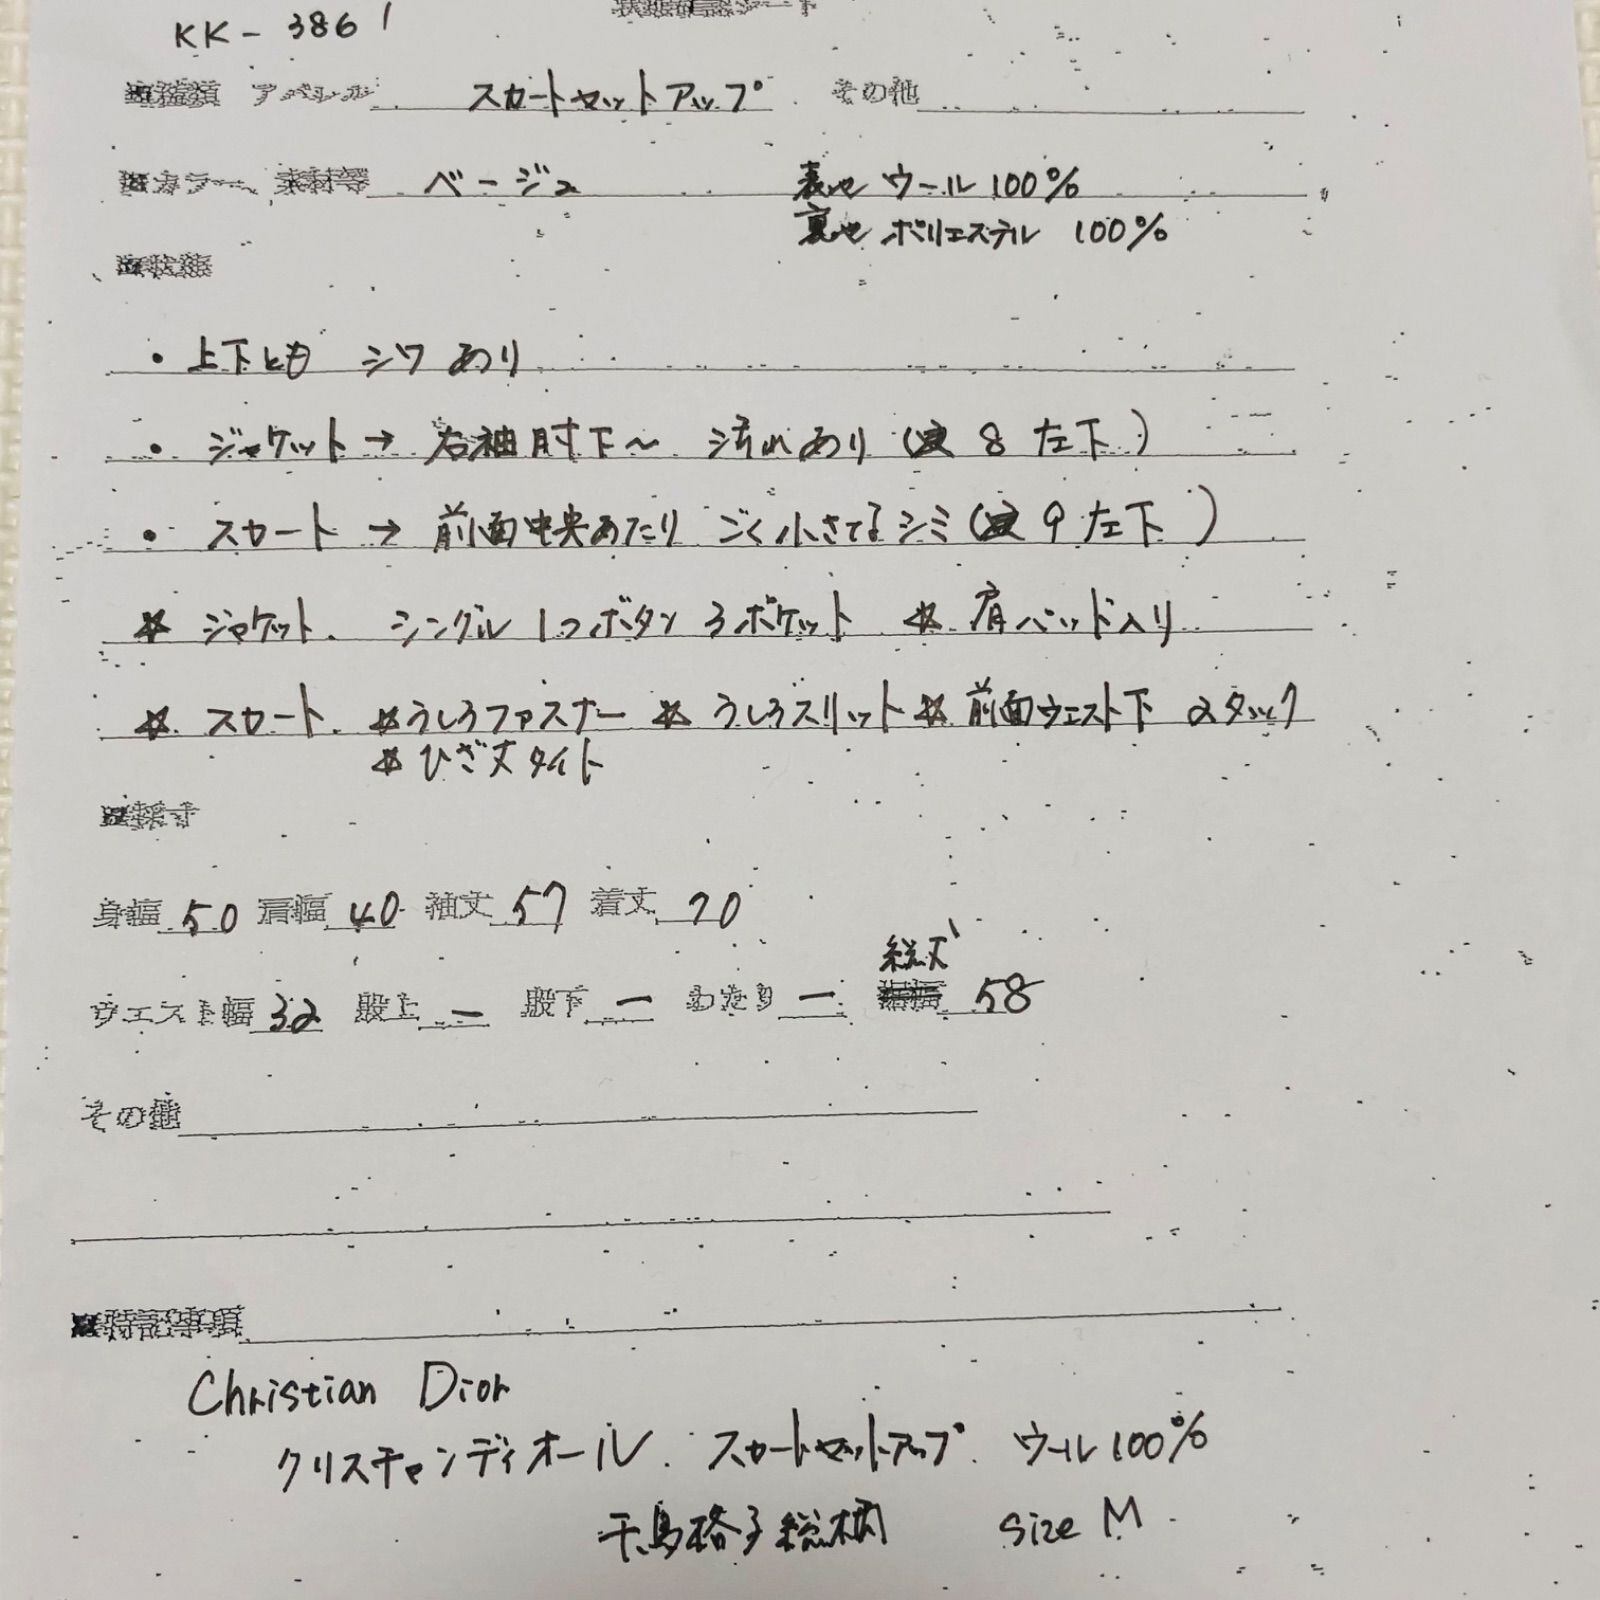 KK-3861
状態確認シート
■種類 アパレル スカートセットアップ その他
■カラー、素材等 ベージュ 表地 ウール 100%
裏地 ポリエステル 100%
■状態
・上下とも シワあり
・ジャケット→右袖肘下〜 汚れあり( 8 左下)
・スカート→前面中央あたり ごく小さなシミ( 9 左下)
☆ ジャケット. シングル 1つボタン 3ポケット ☆ 肩パッド入り
☆ スカート. ☆うしろファスナー ☆ うしろスリット ☆ 前面ウエスト下 2タック
☆ ひざ丈タイト
■採寸
身幅 50 肩幅 40 袖丈 57 着丈 70
総丈
ウエスト幅 32 股上 ー 股下 ー わたり ー 58
その他
■特記事項
Christian Dior
クリスチャンディオール. スカートセットアップ. ウール100%
千鳥格子総柄 size M